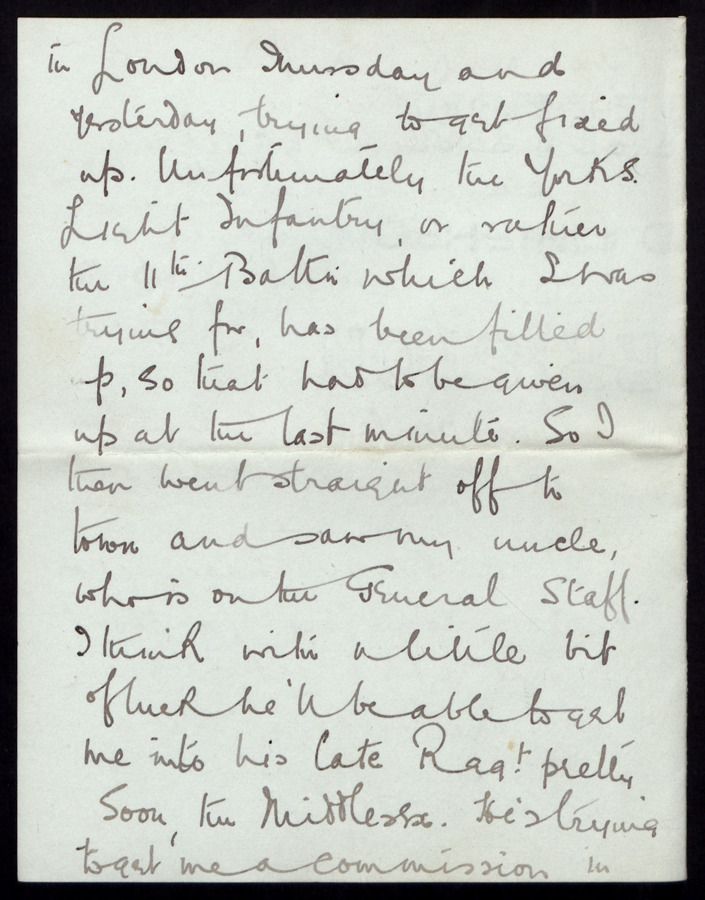 in London Thursday and
yesterday, trying to get fixed
up. Unfortunately the Yorks.
Light Infantry, or rather
the 11th Battn which I was
trying for, has been filled
up, so that had to be given
up at the last minute. So I
then went straight off to
town and saw my uncle,
who is on the General Staff.
I think with a little bit
of luck he'll be able to get
me into his late Regt. pretty
soon, the Middlesex. He's trying
to get me a commission in